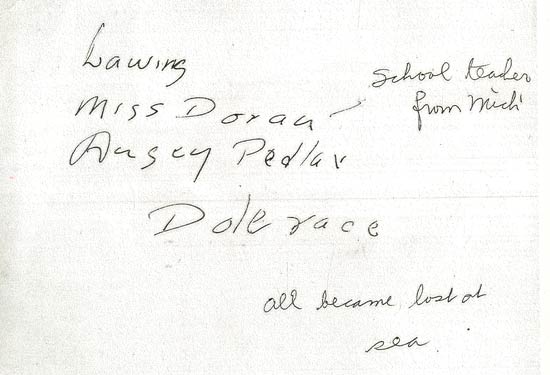 Lawing
Miss Doran — School teacher
from Mich
Pedlar
Dole race
all became lost at
sea.